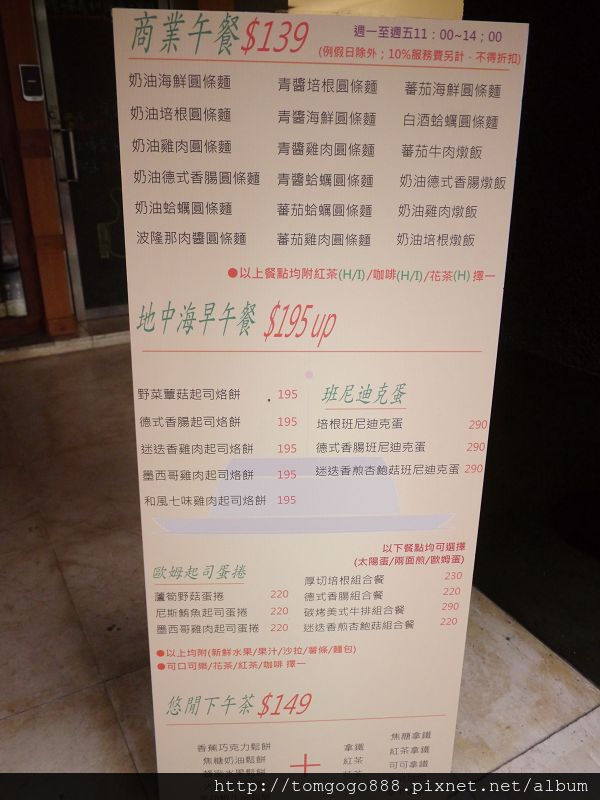 商業午餐$139
週一至週五11：00~14；00
(例假日除外；10%服務費另計，不得折扣)
奶油海鮮圓條麵 青醬培根圓條麵 蕃茄海鮮圓條麵
奶油培根圓條麵 青醬海鮮圓條麵 白酒蛤蠣圓條麵
奶油雞肉圓條麵 青醬雞肉圓條麵 蕃茄牛肉燉飯
奶油德式香腸圓條麵 青醬蛤蠣圓條麵 奶油德式香腸燉飯
奶油蛤蠣圓條麵 蕃茄蛤蠣圓條麵 奶油雞肉燉飯
波隆那肉醬圓條麵 蕃茄雞肉圓條麵 奶油培根燉飯
●以上餐點均附紅茶(H/I)/咖啡(H/I)/花茶(H) 擇一
地中海早午餐 $195up
野菜蕈菇起司烙餅 195
德式香腸起司烙餅 195
迷迭香雞肉起司烙餅 195
墨西哥雞肉起司烙餅 195
和風七味雞肉起司烙餅 195
班尼迪克蛋
培根班尼迪克蛋 290
德式香腸班尼迪克蛋 290
迷迭香煎杏鮑菇班尼迪克蛋 290
歐姆起司蛋捲
蘆筍野菇蛋捲 220
尼斯鮪魚起司蛋捲 220
墨西哥雞肉起司蛋捲 220
以下餐點均可選擇
(太陽蛋/兩面煎/歐姆蛋)
厚切培根組合餐 230
德式香腸組合餐 220
碳烤美式牛排組合餐 290
迷迭香煎杏鮑菇組合餐 220
●以上均附(新鮮水果/果汁/沙拉/薯條/麵包)
●可口可樂/花茶/紅茶/咖啡 擇一
悠閒下午茶 $149
香蕉巧克力鬆餅
焦糖奶油鬆餅
+
拿鐵
紅茶
焦糖拿鐵
紅茶拿鐵
可可拿鐵
http://tomgogo888.pixnet.net/album